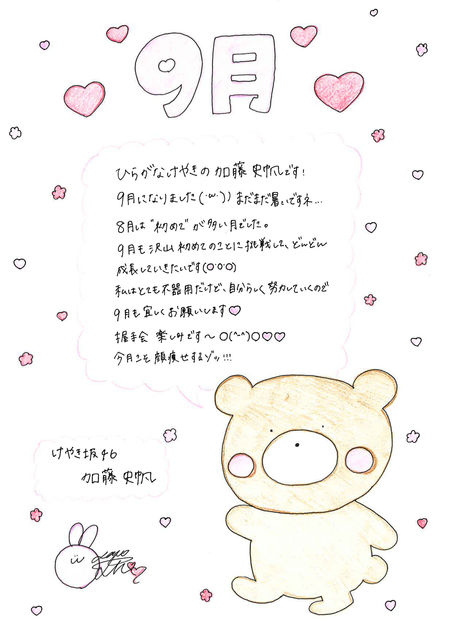 9月
ひらがなけやきの加藤史帆です!
9月になりました(·ω·)) まだまだ暑いですネ...
8月は"初めて"が多い月でした。
9月も沢山初めてのことに挑戦して、どんどん
成長していきたいです(○·○·○)
私はとても不器用だけど、自分らしく努力していくので
9月も宜しくお願いします♡
握手会 楽しみです〜 ○(^-^)○♡♡
今月こそ顔痩せするゾッ!!!
けやき坂46
加藤 史帆